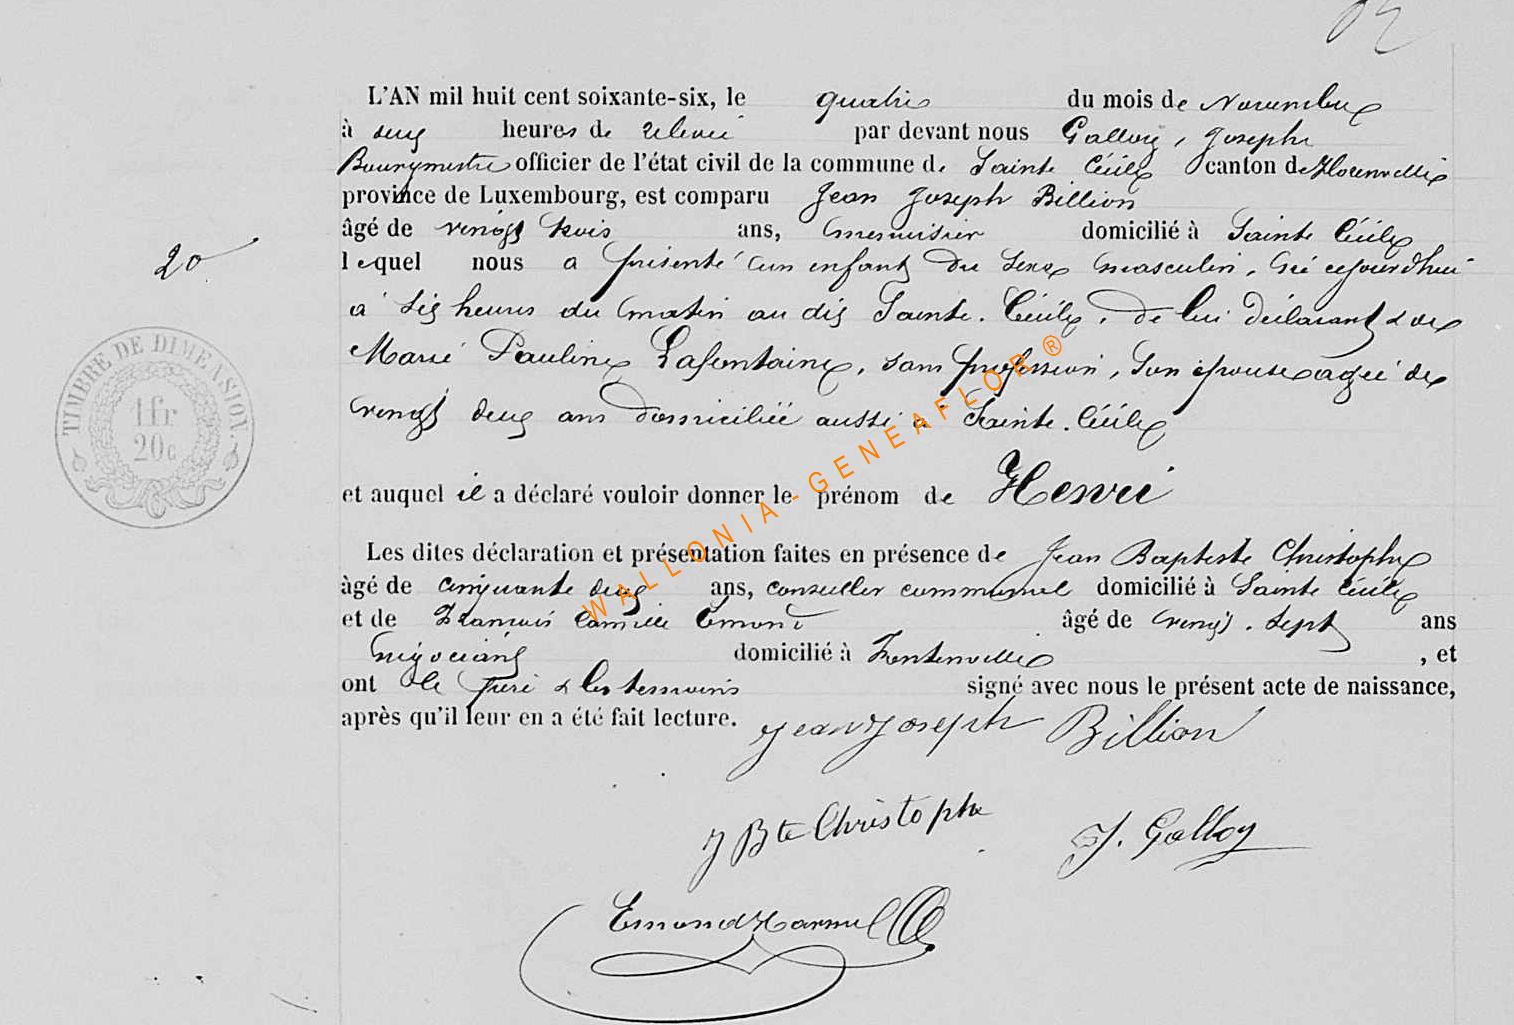 L'AN mil huit cent soixante-six, le quatre du mois de Novembre
à deux heures de relevée par devant nous Galloy, Joseph
Bourgmestre officier de l'état civil de la commune de Sainte Cécile canton de Florenville
province de Luxembourg, est comparu Jean Joseph Billion
âgé de vingt trois ans, menuisier domicilié à Sainte Cécile
lequel nous a présenté un enfant du sexe masculin, né cejourd'hui
20
à six heures du matin au dit Sainte-Cécile, de lui déclarant & de
Marie Pauline Lafontaine, sans profession, son épouse agée de
vingt deux ans domiciliée aussi à Sainte-Cécile
TIMBRE DE DIMENSION.
1fr
20c
et auquel il a déclaré vouloir donner le prénom de Henri
Les dites déclaration et présentation faites en présence de Jean Baptiste Christophe
âgé de cinquante deux ans, conseiller communal domicilié à Sainte Cécile
et de François Camille Emond âgé de vingt-sept ans
négociant domicilié à Fontenoille, et
ont le père & les témoins signé avec nous le présent acte de naissance,
après qu'il leur en a été fait lecture. Jean Joseph Billion
J Bte Christophe J. Galloy
Emond Harmel
WALLONIA-GENEAFLOR®